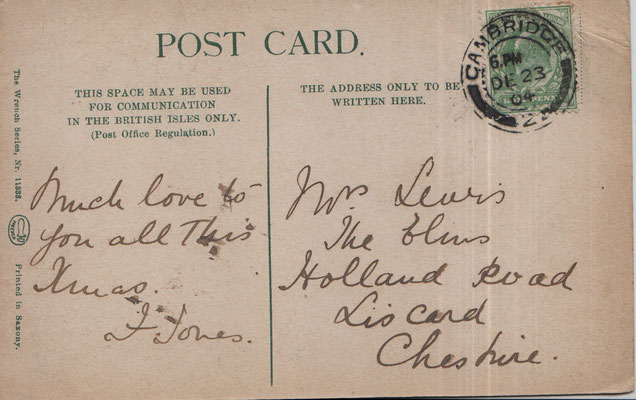 POST CARD.
THIS SPACE MAY BE USED
FOR COMMUNICATION
IN THE BRITISH ISLES ONLY.
(Post Office Regulation.)
THE ADDRESS ONLY TO BE
WRITTEN HERE.
CAMBRIDGE
6.PM
DE 23
04
The Wrench Series, Nr. 11388.
Printed in Saxony.
Much love to
you all This
Xmas.
J Jones.
Mrs Lewis
The Elms
Holland Road
Liscard
Cheshire.